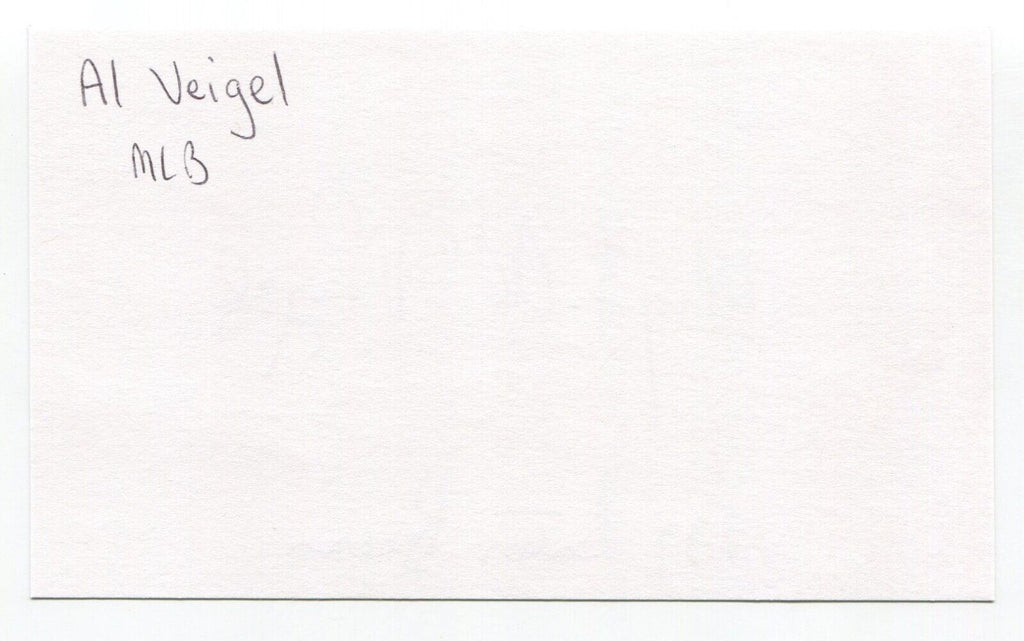 Al Veigel
MLB